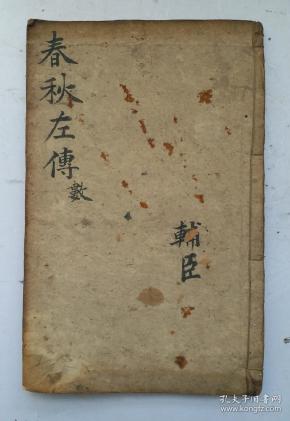 春秋左傳數
輔臣
孔夫子旧書网
www.kongfz.com